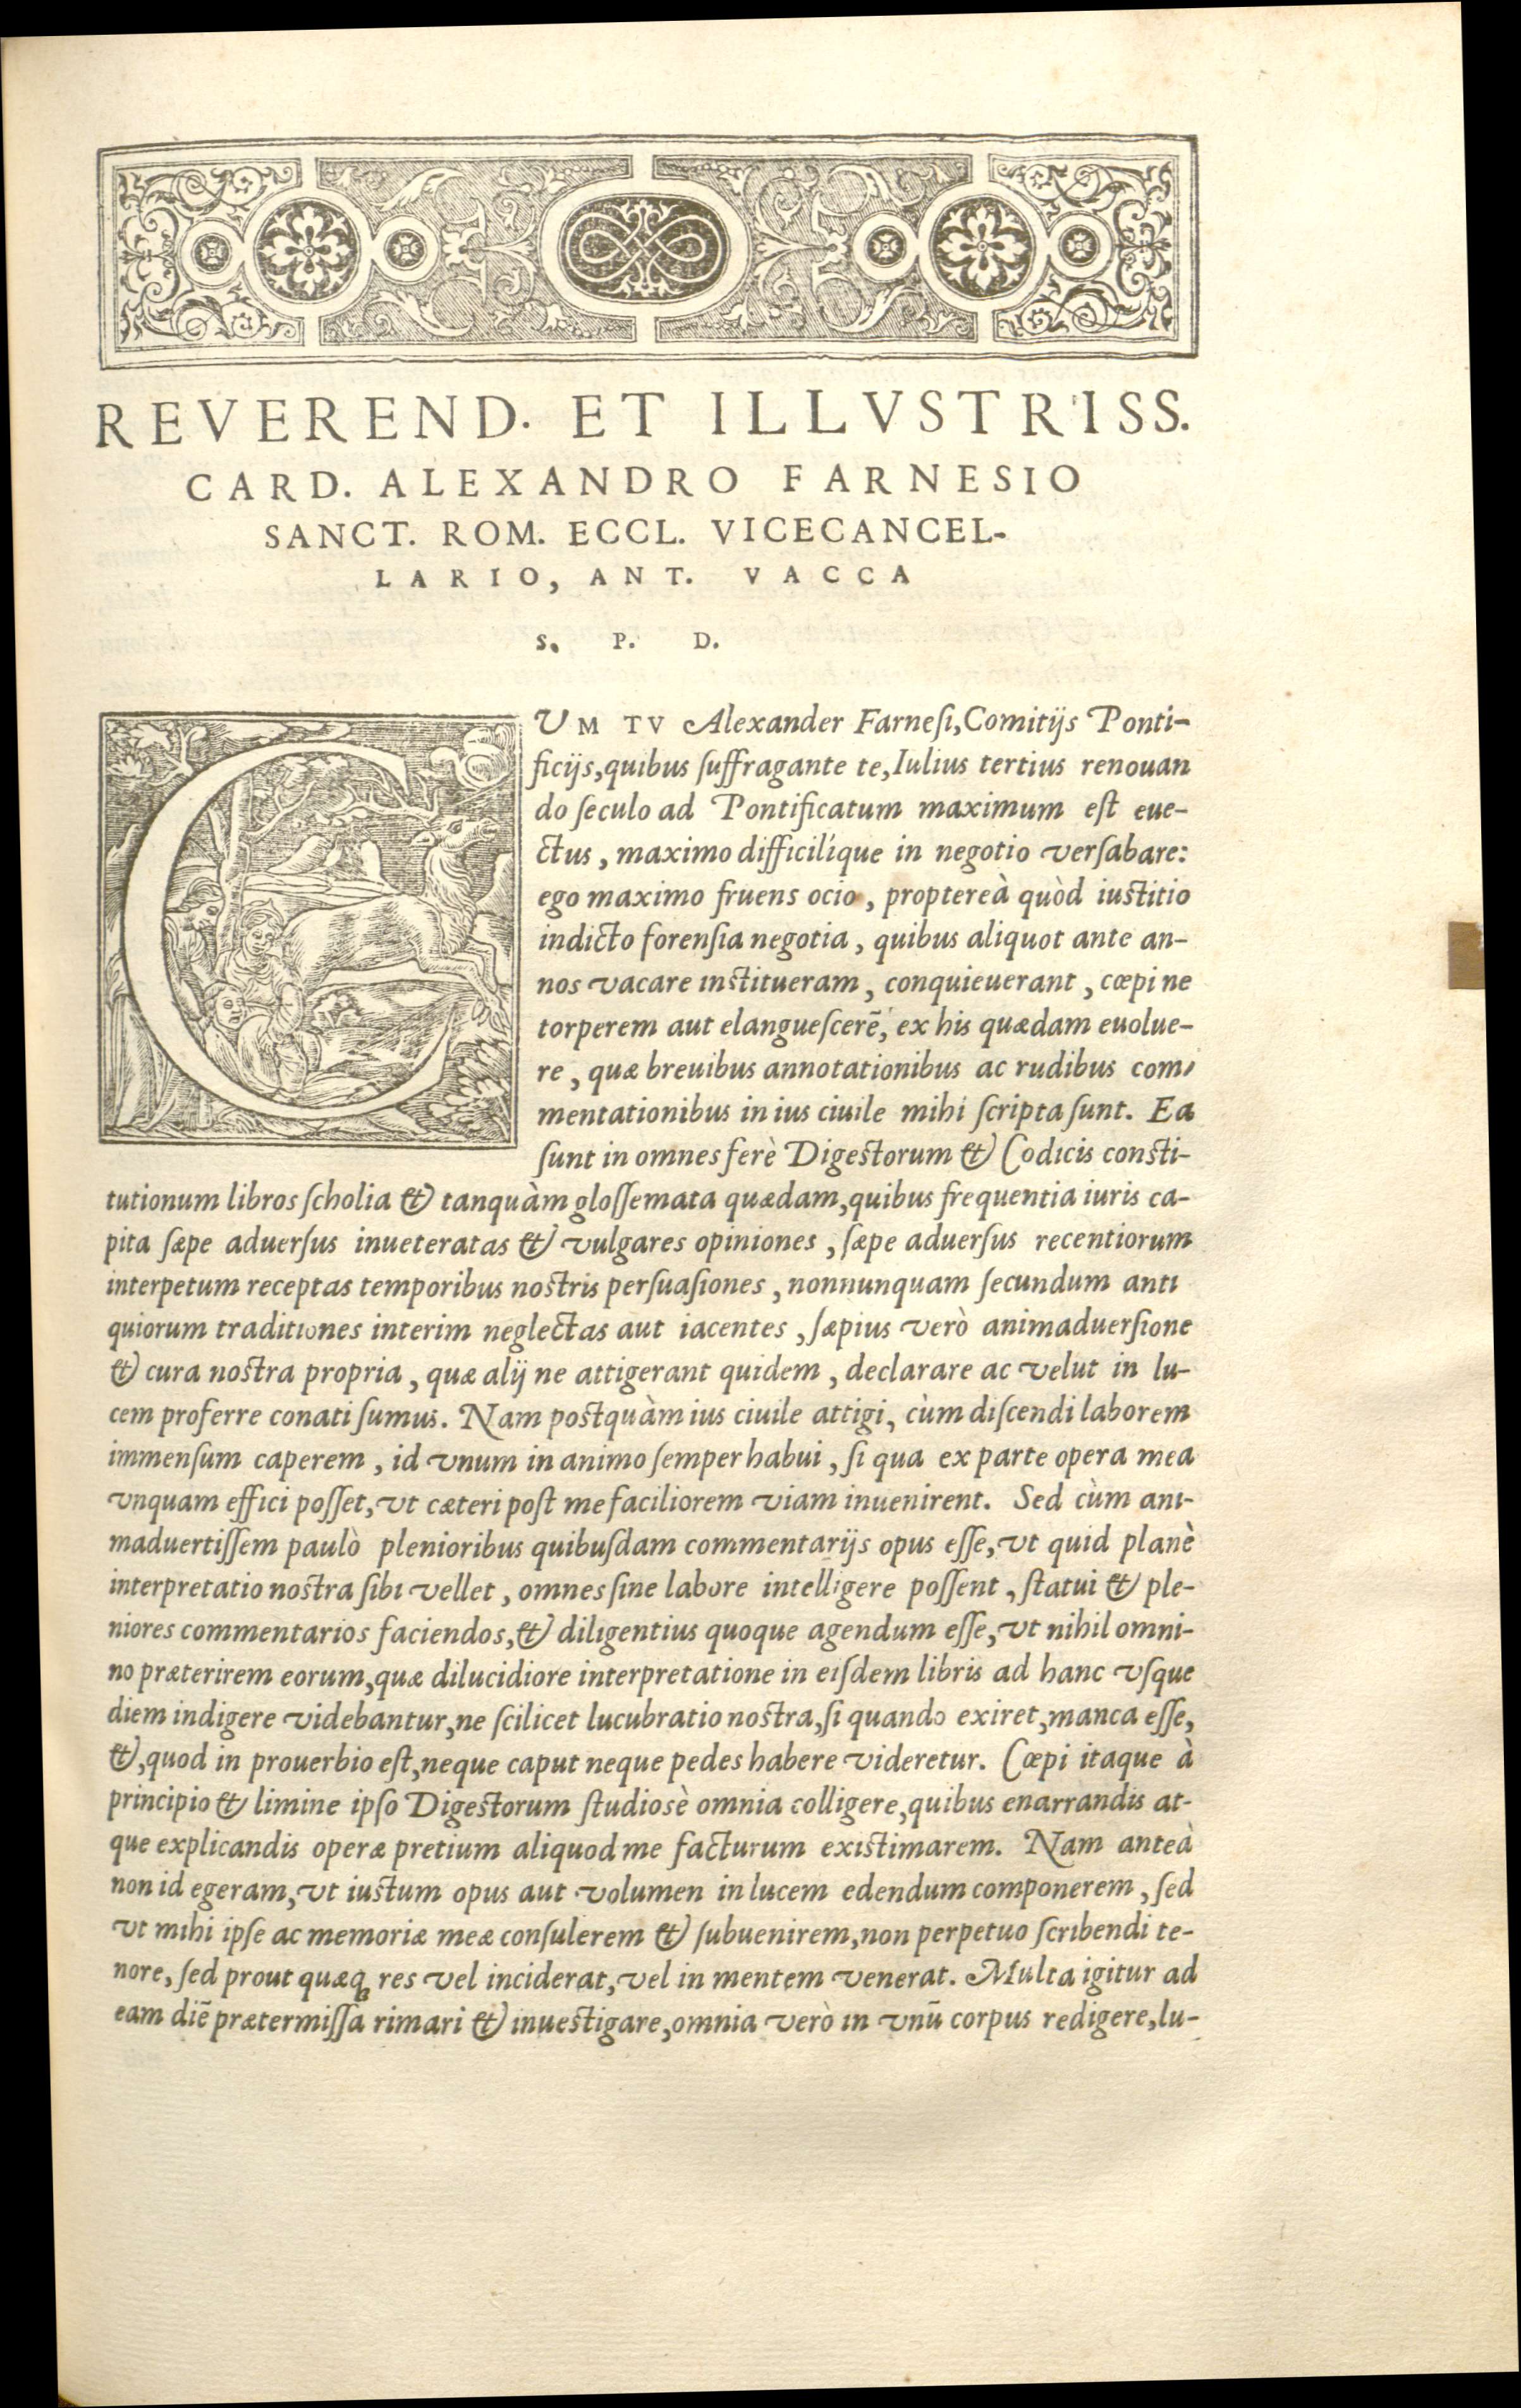 REVEREND. ET ILLVSTRISS.
CARD. ALEXANDRO FARNESIO
SANCT. ROM. ECCL. VICECANCEL-
LARIO, ANT. VACCA
S. P. D.
CUM TV Alexander Farneſi, Comitijs Ponti-
ficijs, quibus ſuffragante te, Iulius tertius renouan
do ſeculo ad Pontificatum maximum eſt eue-
ctus, maximo difficilíque in negotio verſabare:
ego maximo fruens ocio, proptereà quòd iuſtitio
indicto forenſia negotia, quibus aliquot ante an-
nos vacare inſtitueram, conquieuerant, cœpi ne
torperem aut elangueſcerē, ex his quædam euolue-
re, quæ breuibus annotationibus ac rudibus com-
mentationibus in ius ciuile mihi ſcripta ſunt. Ea
ſunt in omnes ferè Digeſtorum & Codicis conſti-
tutionum libros ſcholia & tanquàm gloſſemata quædam, quibus frequentia iuris ca-
pita ſæpe aduerſus inueteratas & vulgares opiniones, ſæpe aduerſus recentiorum
interpetum receptas temporibus noſtris perſuaſiones, nonnunquam ſecundum anti
quiorum traditiones interim neglectas aut iacentes, ſæpius verò animaduerſione
& cura noſtra propria, quæ alij ne attigerant quidem, declarare ac velut in lu-
cem proferre conati ſumus. Nam poſtquàm ius ciuile attigi, cùm diſcendi laborem
immenſum caperem, id vnum in animo ſemper habui, ſi qua ex parte opera mea
vnquam effici poſſet, vt cæteri poſt me faciliorem viam inuenirent. Sed cùm ani-
maduertiſſem paulò plenioribus quibuſdam commentarijs opus eſſe, vt quid planè
interpretatio noſtra ſibi vellet, omnes ſine labore intelligere poſſent, ſtatui & ple-
niores commentarios faciendos, & diligentius quoque agendum eſſe, vt nihil omni-
no præterirem eorum, quæ dilucidiore interpretatione in eiſdem libris ad hanc vſque
diem indigere videbantur, ne ſcilicet lucubratio noſtra, ſi quando exiret, manca eſſe,
&, quod in prouerbio eſt, neque caput neque pedes habere videretur. Cœpi itaque à
principio & limine ipſo Digeſtorum ſtudiosè omnia colligere, quibus enarrandis at-
que explicandis operæ pretium aliquod me facturum exiſtimarem. Nam anteà
non id egeram, vt iuſtum opus aut volumen in lucem edendum componerem, ſed
vt mihi ipſe ac memoriæ meæ conſulerem & ſubuenirem, non perpetuo ſcribendi te-
nore, ſed prout quæq; res vel inciderat, vel in mentem venerat. Multa igitur ad
eam diē prætermiſſa rimari & inueſtigare, omnia verò in vnū corpus redigere, lu-